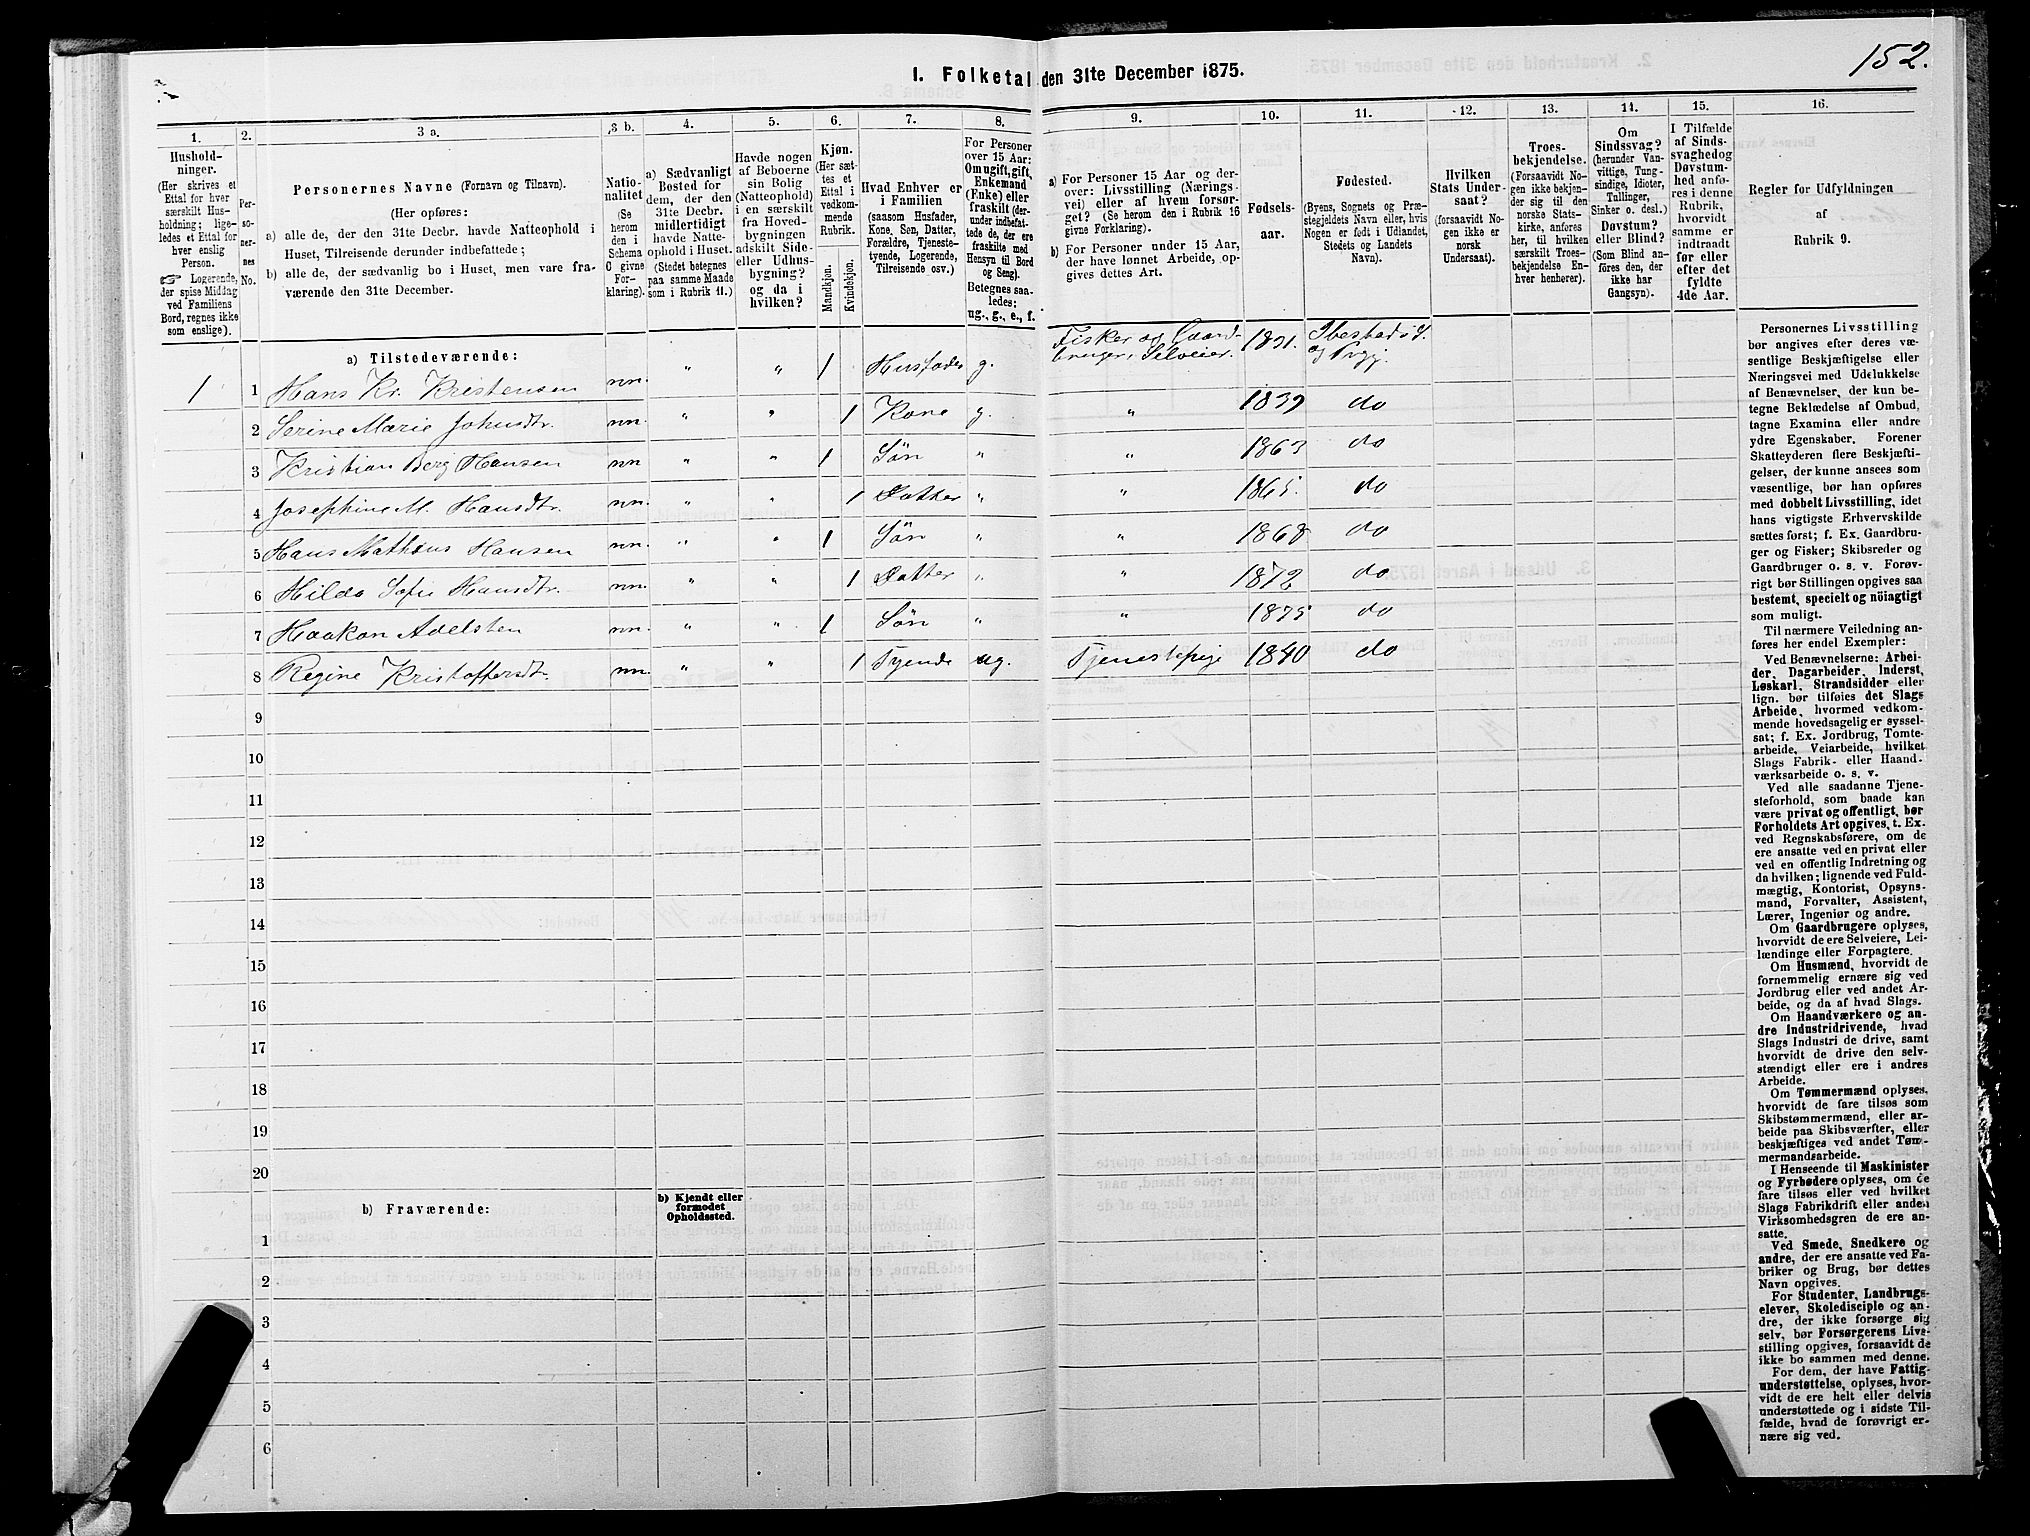 152.
I. Folketal den 31te December 1875.
1.
Hushold-
ninger.
(Her skrives et
Ettal for hver
særskilt Hus-
holdning; lige-
ledes et Ettal for
hver enslig
Person.
☞ Logerende,
der spise Middag
ved Familiens
Bord, regnes ikke
som enslige).
2.
Per-
so-
ner-
nes
No.
3 a.
Personernes Navne (Fornavn og Tilnavn).
(Her opføres:
a) alle de, der den 31te Decbr. havde Natteophold i
Huset, Tilreisende derunder indbefattede;
b) alle de, der sædvanlig bo i Huset, men vare fra-
værende den 31te December.
3 b.
Natio-
nalitet
(Se
herom
den i
Schema
C givne
For-
klaring).
4.
a) Sædvanligt
Bosted for
dem, der den
31te Decbr.
midlertidigt
havde Natte-
ophold i Huset.
(Stedet betegnes
paa samme Maade
som i Rubrik 11.)
5.
Havde nogen
af Beboerne
sin Bolig
(Natteophold)
i en særskilt
fra Hoved-
bygningen
adskilt Side-
eller Udhus-
bygning?
og da i
hvilken?
6.
Kjøn.
(Her sæt-
tes et
Ettal i
vedkom-
mende
Rubrik.
Mandkjøn.
Kvindekjøn.
7.
Hvad Enhver er
i Familien
(saasom Husfader,
Kone, Søn, Datter,
Forældre, Tjeneste-
tyende, Logerende,
Tilreisende osv.)
8.
For Personer
over 15 Aar:
Om ugift, gift,
Enkemand
(Enke) eller
fraskilt (der-
under indbefat-
tede de, der ere
fraskilte med
Hensyn til Bord
og Seng).
Betegnes saa-
ledes:
ug., g., e., f.
9.
a) For Personer 15 Aar og der-
over: Livsstilling (Nærings-
vei) eller af hvem forsør-
get? (Se herom den i Rubrik 16
givne Forklaring).
b) For Personer under 15 Aar,
der have lønnet Arbeide, op-
gives dettes Art.
10.
Fødsels-
aar.
11.
Fødested.
(Byens, Sognets og Præ-
stegjeldets Navn eller, hvis
Nogen er født i Udlandet,
Stedets og Landets
Navn).
12.
Hvilken
Stats Under-
saat?
(forsaavidt No-
gen ikke er
norsk
Undersaat).
13.
Troes-
bekjendelse.
(Forsaavidt Nogen
ikke bekjen-
der sig til den
norske Stats-
kirke, anføres
her, til hvilken
særskilt Troes-
bekjendelse En-
hver henhører).
14.
Om
Sindssvag?
(herunder Van-
vittige, Tung-
sindige, Idioter,
Tullinger,
Sinker o. desl.)
Døvstum?
eller Blind?
(Som Blind an-
føres den, der
ikke har
Gangsyn).
15.
I Tilfælde
af Sinds-
svaghed og
Døvstum-
hed anfø-
res i denne
Rubrik,
hvorvidt
samme er
indtraadt
før eller
efter det
fyldte
4de Aar.
16.
Regler for Udfyldningen
af
Rubrik 9.
a) Tilstedeværende:
1 1 Hans Kr. Kristensen nn. " " 1 Husfader g. Fisker og Gaard-
bruger, Selveier. 1831. Ibestad S.
og Prgj.
2 Serine Marie Johnsdtr. nn. " " 1 Kone g. " 1839 do
3 Kristian Berg Hansen nn. " " 1 Søn " " 1863 do
4 Josephine M. Hansdtr. nn. " " 1 Datter " " 1865. do
5 Hans Mathæus Hansen nn. " " 1 Søn " " 1868 do
6 Hilda Sofie Hansdtr. nn. " " 1 Datter " " 1872 do
7 Haakon Adelsten nn. " " 1 Søn " " 1875 do
8 Regine Kristoffersdtr. nn. " " 1 Tyende ug. Tjenestepige 1840 do
9
10
11
12
13
14
15
16
17
18
19
20
b) Fraværende:
b) Kjendt eller
formodet
Opholdssted.
1
2
3
4
5
6
Personernes Livsstilling
bør angives efter deres væ-
sentlige Beskjæftigelse eller
Næringsvei med Udelukkelse
af Benævnelser, der kun be-
tegne Beklædelse af Ombud,
tagne Examina eller andre
ydre Egenskaber. Forener
Skatteyderen flere Beskjæfti-
gelser, der kunne ansees som
væsentlige, bør han opføres
med dobbelt Livsstilling, idet
hans vigtigste Erhvervskilde
sættes først; f. Ex. Gaardbru-
ger og Fisker; Skibsreder og
Gaardbruger o. s. v. Forøv-
rigt bør Stillingen opgives saa
bestemt, specielt og nöiagtigt
som muligt.
Til nærmere Veiledning an-
føres her endel Exempler:
Ved Benævnelserne: Arbei-
der, Dagarbeider, Inderst,
Løskarl, Strandsidder eller
lign. bør tilføies det Slags
Arbeide, hvormed vedkom-
mende hovedsagelig er syssel-
sat; f. Ex. Jordbrug, Tomte-
arbeide, Veiarbeide, hvilket
Slags Fabrik- eller Haand-
værksarbeide o. s. v.
Ved alle saadanne Tjene-
steforhold, som baade kan
være privat og offentligt, bør
Forholdets Art opgives, t. Ex.
ved Regnskabsførere, om de
ere ansatte ved en privat eller
ved en offentlig Indretning og
da hvilken; lignende ved Fuld-
mægtig, Kontorist, Opsyns-
mand, Forvalter, Assistent,
Lærer, Ingeniør og andre.
Om Gaardbrugere oplyses,
hvorvidt de ere Selveiere, Lei-
lændinge eller Forpagtere.
Om Husmænd, hvorvidt de
fornemmelig ernære sig ved
Jordbrug eller ved andet Ar-
beide, og da af hvad Slags.
Om Haandværkere og an-
dre Industridrivende, hvad
Slags Industri de drive, samt
hvorvidt de drive den selv-
stændigt eller ere i andres
Arbeide.
Om Tømmermænd oplyses,
hvorvidt de fare tilsøs som
Skibstømmermænd, eller ar-
beide paa Skibsværfter, eller
beskjæftiges ved andet Tøm-
mermandsarbeide.
I Henseende til Maskinister
og Fyrbødere oplyses, om de
fare tilsøs eller ved hvilket
Slags Fabrikdrift eller anden
Virksomhedsgren de ere an-
satte.
Ved Smede, Snedkere og
andre, der ere ansatte ved Fa-
briker og Brug, bør dettes
Navn opgives.
For Studenter, Landbrugs-
elever, Skoledisciple og an-
dre, der ikke forsørge sig
selv, bør Forsørgerens Livs-
stilling opgives, forsaavidt de
ikke bo sammen med denne.
For dem, der have Fattig-
understøttelse, oplyses, hvor-
vidt de ere helt eller delvis
understøttede og i sidste Til-
fælde, hvad de forøvrigt er-
nære sig ved.